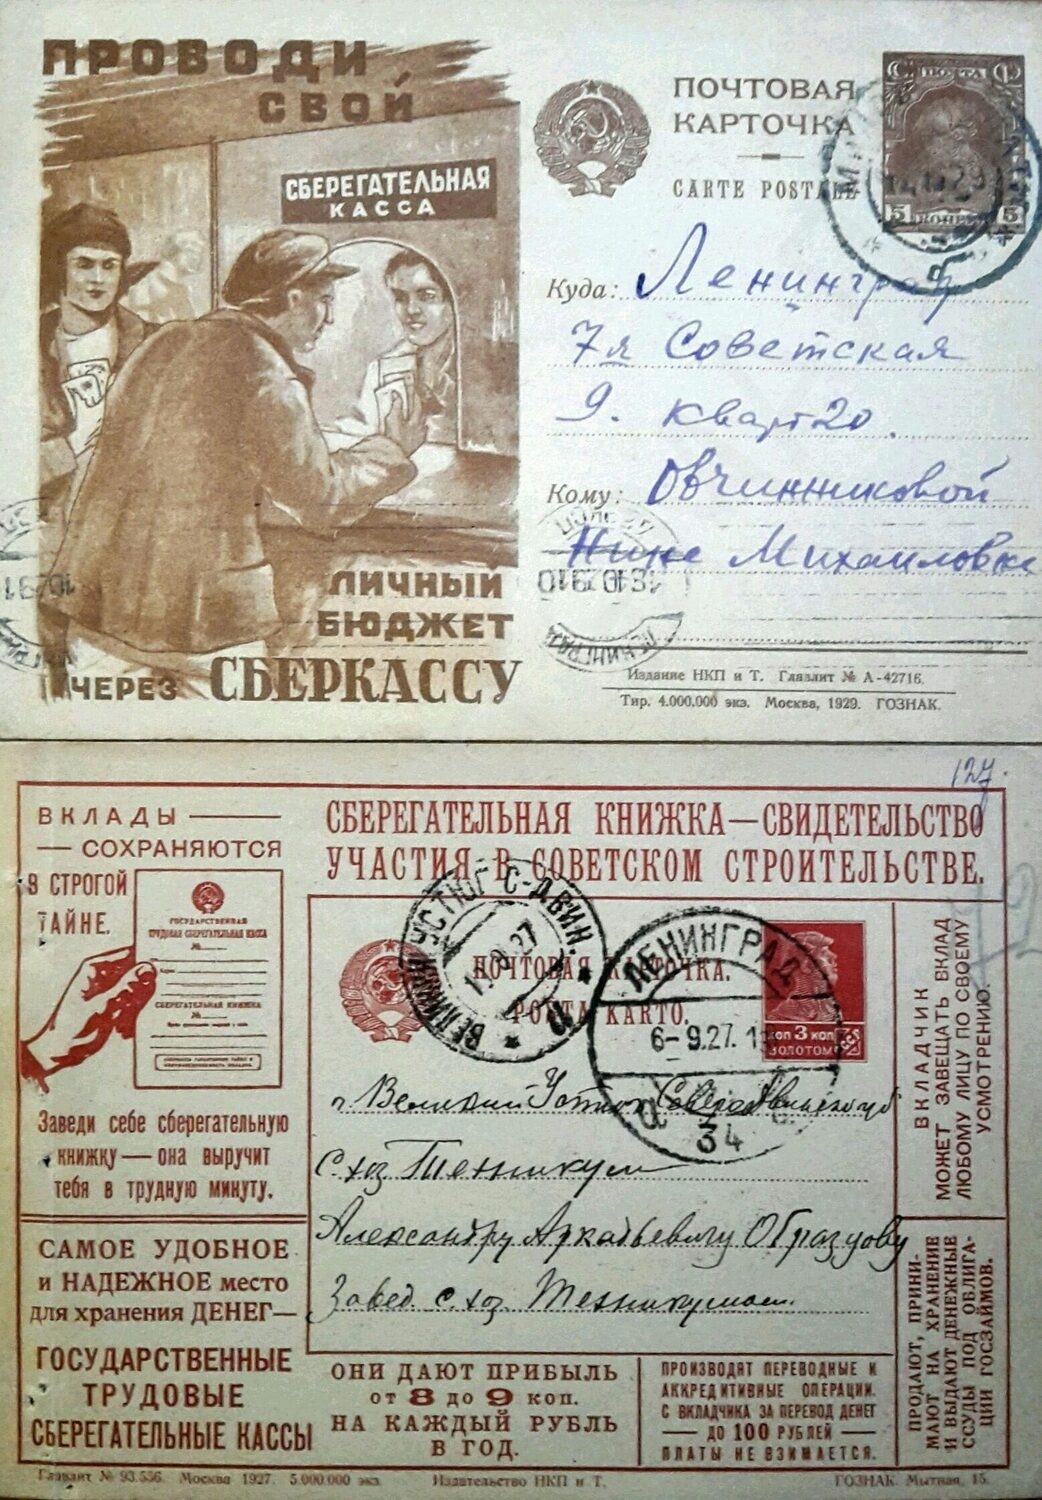 ПРОВОДИ
СВОЙ
СБЕРЕГАТЕЛЬНАЯ
КАССА
ЛИЧНЫЙ
БЮДЖЕТ
ЧЕРЕЗ СБЕРКАССУ
ПОЧТОВАЯ
КАРТОЧКА
CARTE POSTALE
ПОЧТА
5 КОПЕЕК 5
Куда: Ленинград
7я Советская
9. кварт 20.
Кому: Овчинниковой
Нине Михайловне
ЛЕНИНГРАД
Издание НКП и Т. Главлит № А-42716.
Тир. 4.000.000 экз. Москва, 1929. ГОЗНАК.
127.
ВКЛАДЫ
СОХРАНЯЮТСЯ
В СТРОГОЙ
ТАЙНЕ.
ГОСУДАРСТВЕННАЯ
ТРУДОВАЯ СБЕРЕГАТЕЛЬНАЯ КАССА
№
СБЕРЕГАТЕЛЬНАЯ КНИЖКА
№
Заведи себе сберегательную
книжку — она выручит
тебя в трудную минуту.
САМОЕ УДОБНОЕ
и НАДЕЖНОЕ место
для хранения ДЕНЕГ—
ГОСУДАРСТВЕННЫЕ
ТРУДОВЫЕ
СБЕРЕГАТЕЛЬНЫЕ КАССЫ
СБЕРЕГАТЕЛЬНАЯ КНИЖКА—СВИДЕТЕЛЬСТВО
УЧАСТИЯ В СОВЕТСКОМ СТРОИТЕЛЬСТВЕ.
ПОЧТОВАЯ КАРТОЧКА.
POŜTA KARTO.
ВЕЛИКИЙ УСТЮГ С-ДВИН.
ЛЕНИНГРАД
6-9.27.
34
КОП 3 КОП
ЗОЛОТОМ
г. Великий Устюг Северодвинской губ
С.хоз. Техникум
Александру Аркадьевичу Образцову
Завед. с.хоз. Техникумом.
ВКЛАДЧИК
МОЖЕТ ЗАВЕЩАТЬ ВКЛАД
ЛЮБОМУ ЛИЦУ ПО СВОЕМУ
УСМОТРЕНИЮ.
ПРОДАЮТ, ПРИНИ-
МАЮТ НА ХРАНЕНИЕ
И ВЫДАЮТ ДЕНЕЖНЫЕ
ССУДЫ ПОД ОБЛИГА-
ЦИИ ГОСЗАЙМОВ.
ОНИ ДАЮТ ПРИБЫЛЬ
от 8 до 9 коп.
НА КАЖДЫЙ РУБЛЬ
В ГОД.
ПРОИЗВОДЯТ ПЕРЕВОДНЫЕ И
АККРЕДИТИВНЫЕ ОПЕРАЦИИ.
С ВКЛАДЧИКА ЗА ПЕРЕВОД ДЕНЕГ
ДО 100 РУБЛЕЙ
ПЛАТЫ НЕ ВЗИМАЕТСЯ.
Главлит № 93.556. Москва 1927. 5.000.000 экз. Издательство НКП и Т. ГОЗНАК. Мытная, 15.